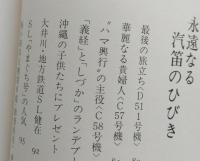 永遠なる
汽笛のひびき
最後の旅立ち〈D51１号機〉
華麗なる貴婦人〈C57号機〉
"ハマ興行"の主役〈C58号機〉
「義経」と「しづか」のランデブー
沖縄の子供たちにプレゼント
大井川・地方鉄道SL健在 92
SL"やまぐち号"の人気 95